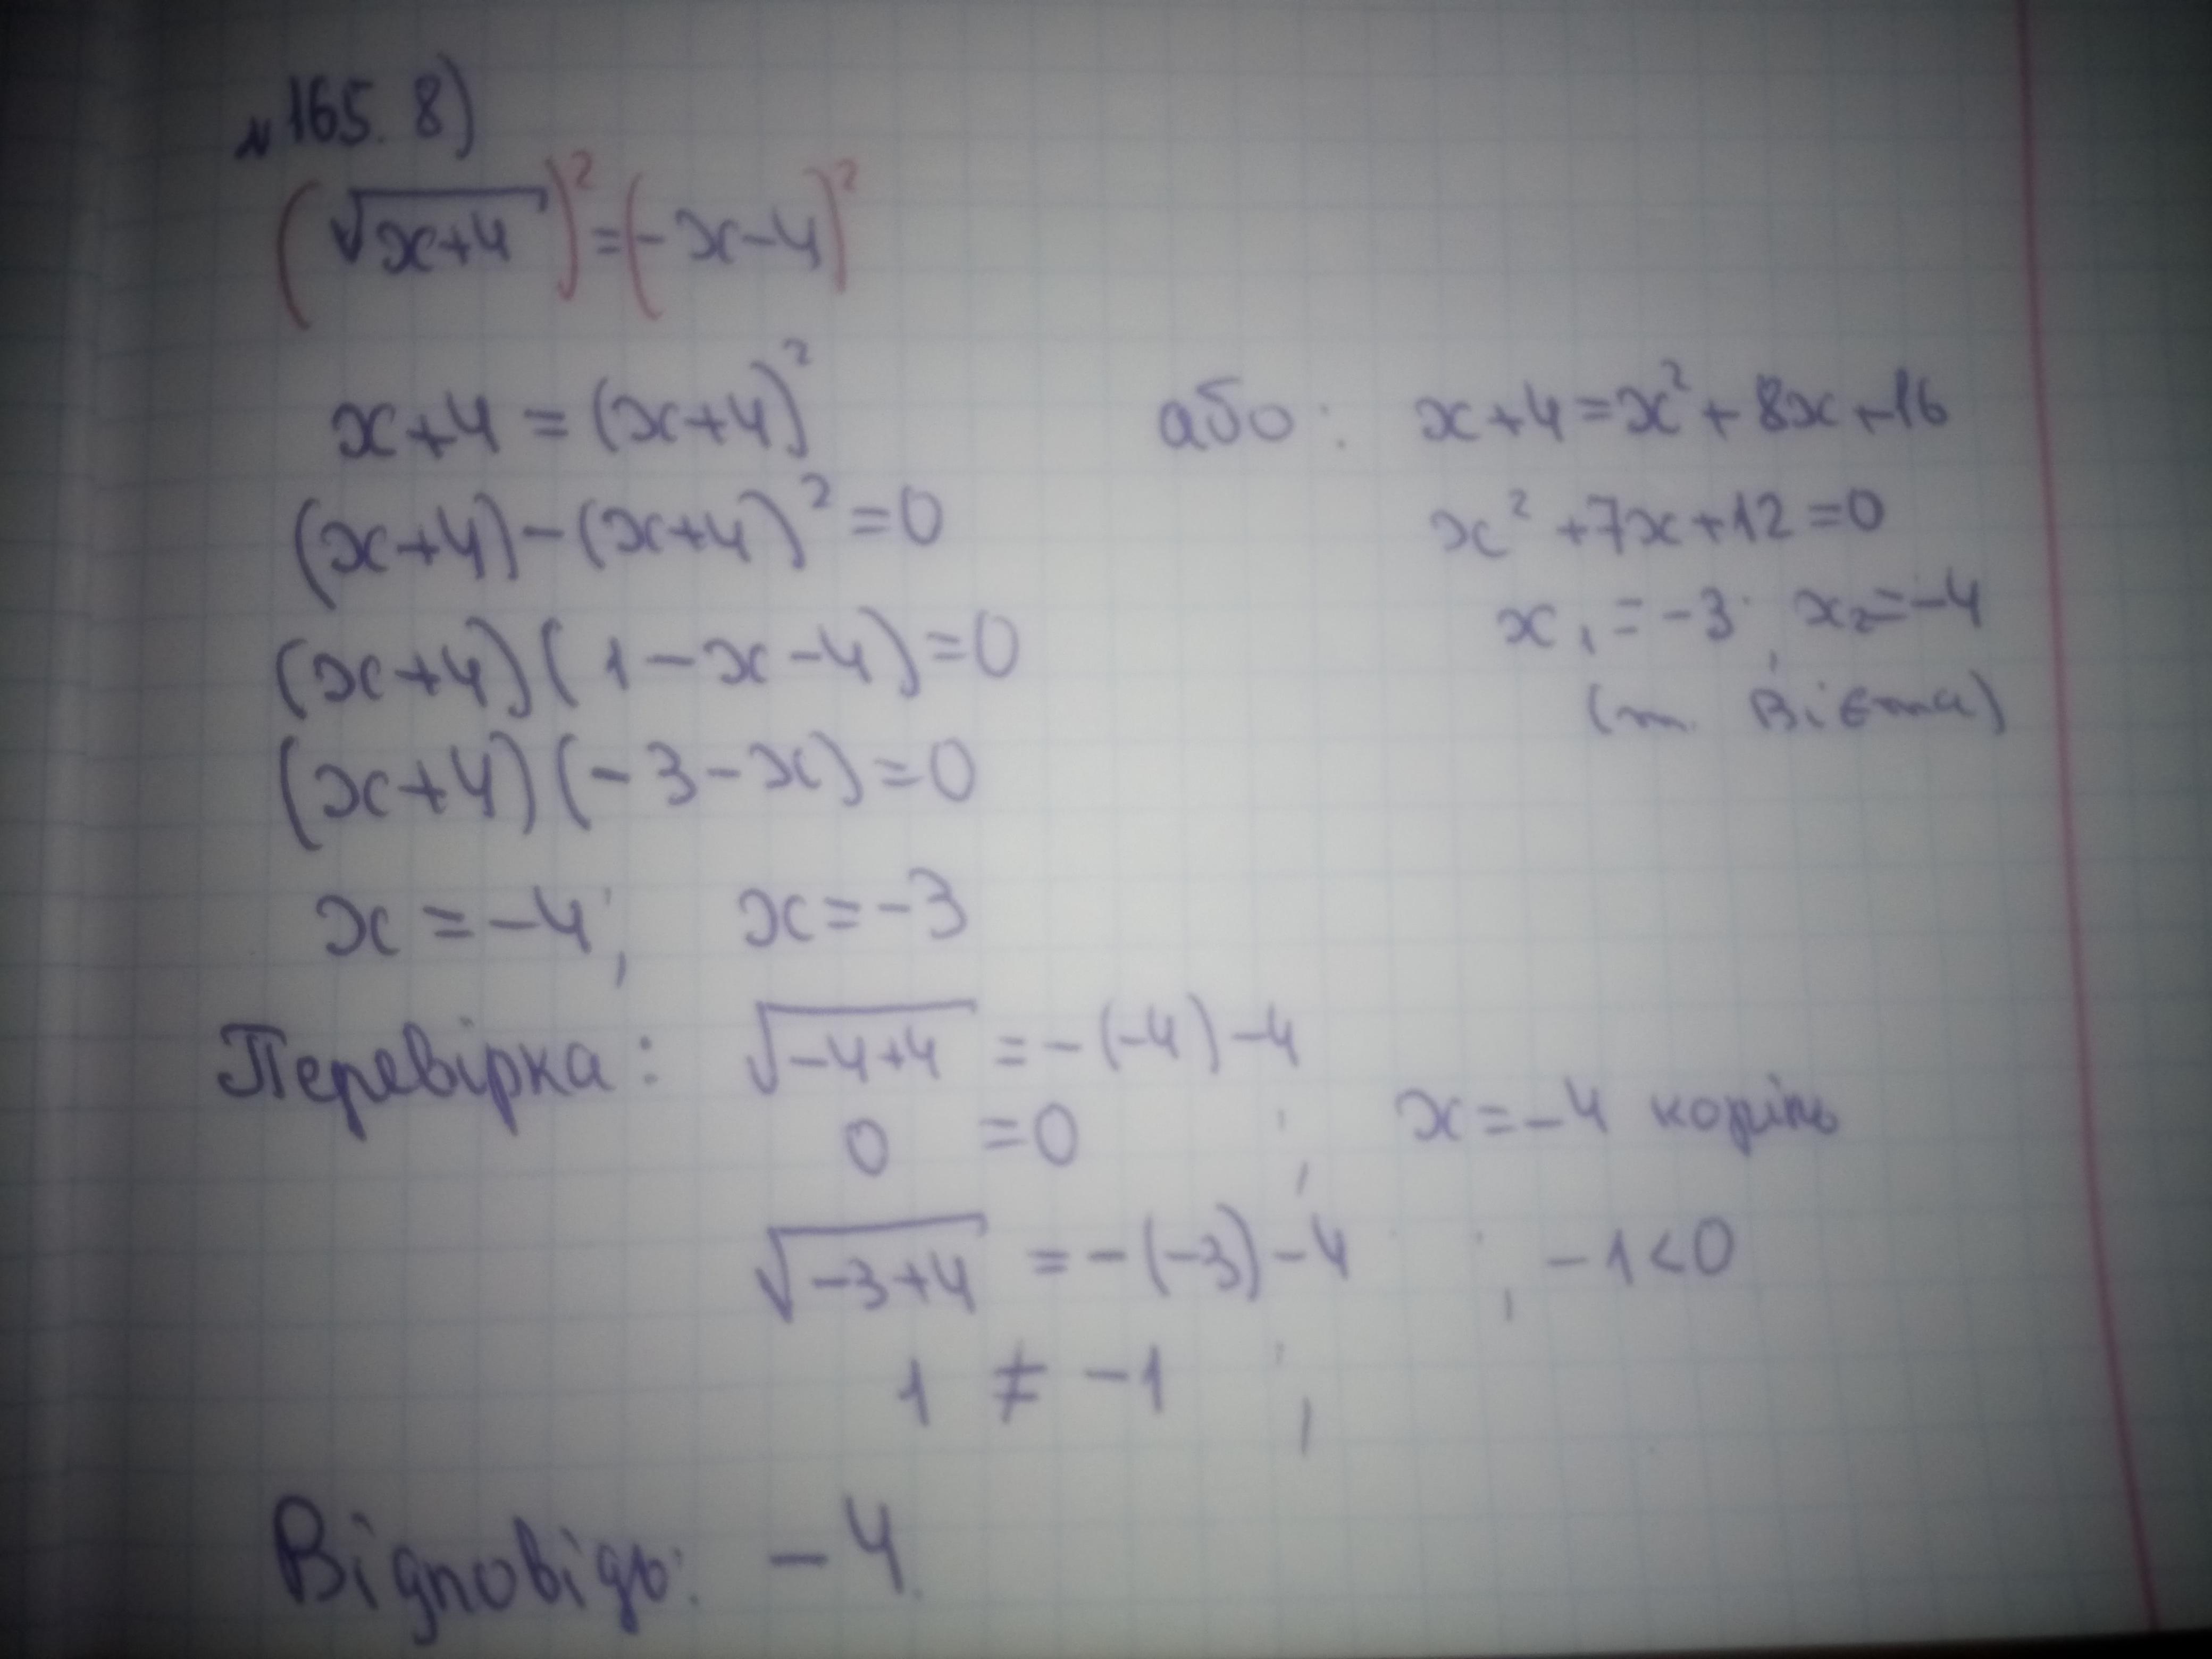 №165. 8)
(√(x+4))² = (-x-4)²
x+4 = (x+4)²
(x+4)-(x+4)²=0
(x+4)(1-x-4)=0
(x+4)(-3-x)=0
x=-4; x=-3
або: x+4=x²+8x+16
x²+7x+12=0
x₁=-3; x₂=-4
(т. Вієта)
Перевірка: √(-4+4) = -(-4)-4
0 =0 ; x=-4 корінь
√(-3+4) = -(-3)-4 ; -1<0
1 ≠ -1 ;
Відповідь: -4.